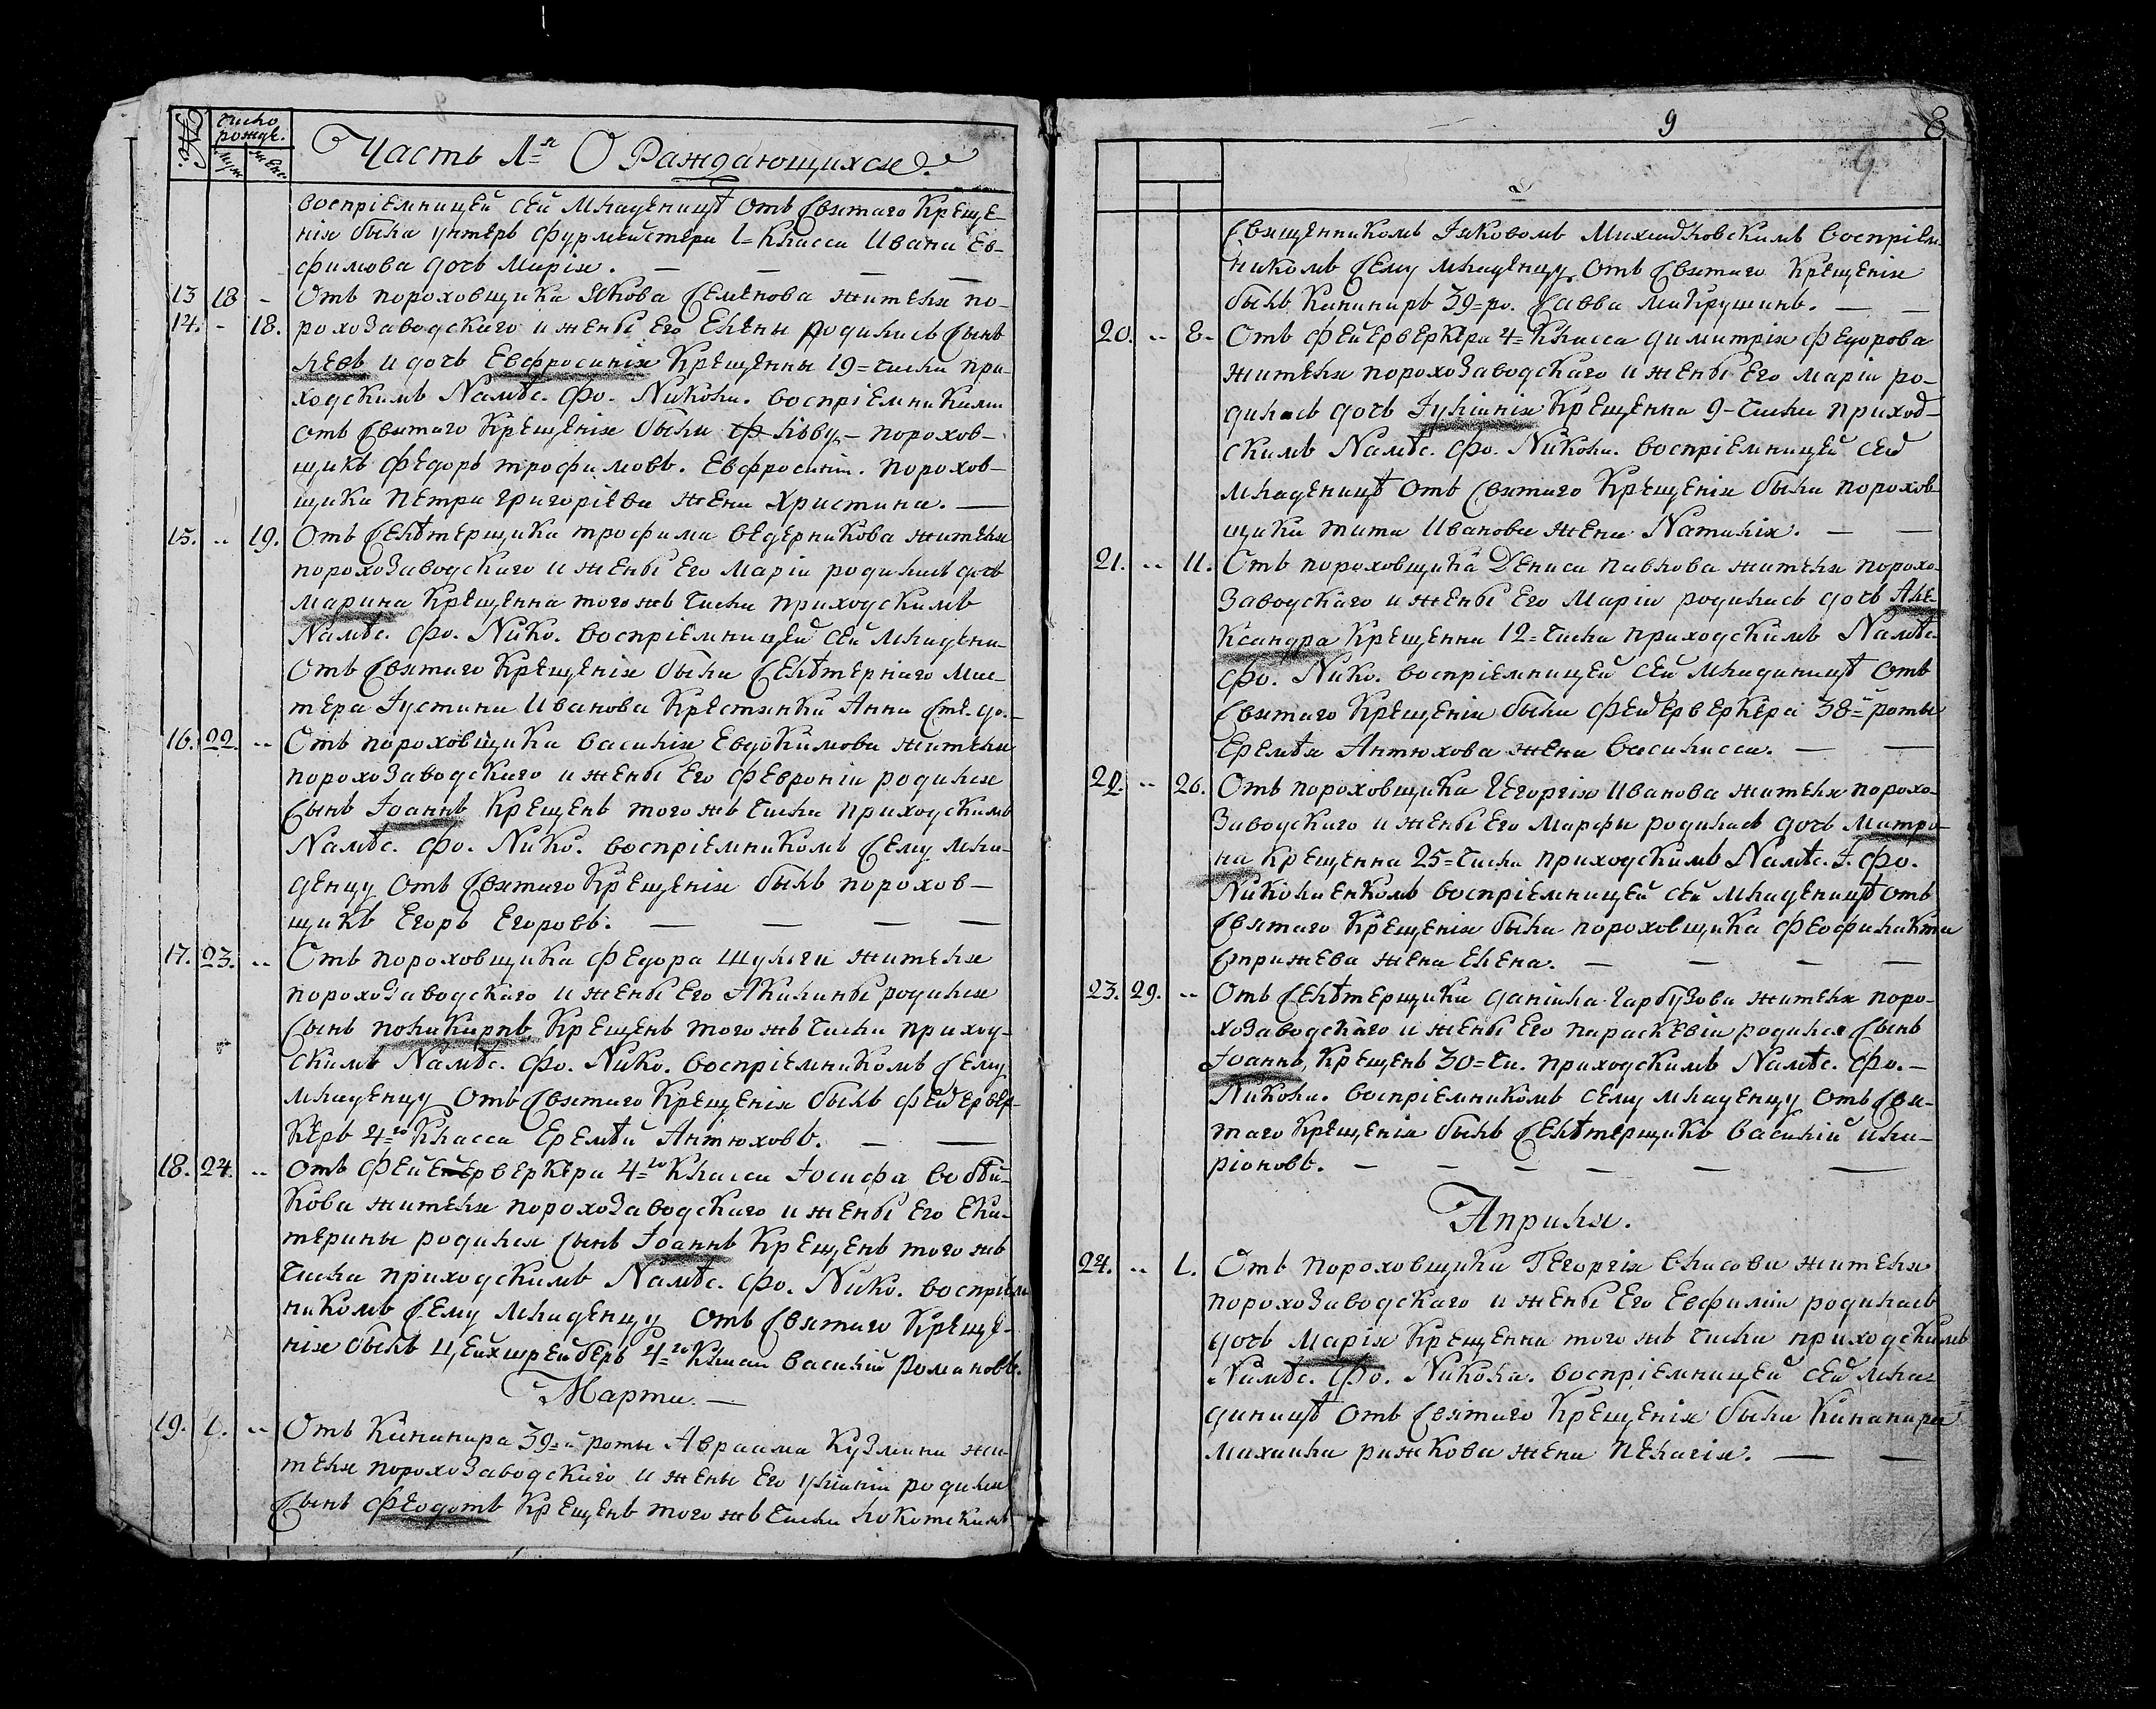 №
число рожде.
муж.
женс.
Часть 1я О Раждающихся
воспріемницей сей младеницѣ отъ Святаго Креще-
нія была унтеръ фурмейстера 1= класса Ивана Ев-
фимова дочь Марія. — — — —
13 18 - Отъ пороховщика Якова Семенова жителя по-
14. - 18. рохозаводскаго и женѣ его Елены родились Сынъ
Левъ и дочь Евфросинія Крещенны 19= числа при-
ходскимъ Намѣс. Фо. Никола. воспріемниками
отъ Святаго Крещенія были Льву - порохов-
щикъ Федоръ Трофимовъ. Евфросиніи. порохов-
щика Петра Григоріева жена Христина. —
15. .. 19. Отъ Селѣтерщика трофима ведерникова жителя
порохозаводскаго и женѣ его Маріи родилась дочь
Марина Крещенна того жъ числа приходскимъ
Намѣс. Фо. Нико. воспріемницей сей младени-
отъ Святаго Крещенія была Селѣтернаго Мас-
тера Іустина Иванова Крестянки Анна Сте. до. -
16. 22. .. Отъ пороховщика василія Евдокимова жителя
порохозаводскаго и женѣ его Февроніи родился
Сынъ Іоаннъ Крещенъ того жъ числа приходскимъ
Намѣс. Фо. Нико. воспріемникомъ Сему мла-
денцу отъ Святаго Крещенія былъ порохов-
щикъ Егоръ Егоровъ. — — — —
17. 23. .. Отъ пороховщика Федора Шульги жителя
порохозаводскаго и женѣ его Акилинѣ родился
Сынъ поликарпъ Крещенъ того жъ числа приход-
скимъ Намѣс. Фо. Нико. воспріемникомъ Сему
младенцу отъ Святаго Крещенія былъ фейервер-
керъ 4го класса Еремѣй Антюховъ. — —
18. 24. .. отъ фейерверкера 4го класса Іосифа
кова жителя порохозаводскаго и женѣ его Ека-
терины родился Сынъ Іоаннъ Крещенъ того жъ
числа приходскимъ Намѣс. Фо. Нико. воспріем
никомъ Сему младенцу отъ Святаго Креще-
нія былъ Цейхшрейберъ 4го класа василій романовъ.
Марта. —
19. 1. .. Отъ Кананира 39й роты Авраама Кузмина жи-
теля порохозаводскаго и жены его Уліаніи родился
Сынъ Феодотъ Крещенъ того жъ числа локотскимъ
9
8
9
Священникомъ Іаковомъ воспріем
никомъ Сему младенцу отъ Святаго Крещенія
былъ Кананиръ 39=ро. Савва Макрушинъ. — —
20. .. 8. Отъ фейерверкера 4= класса димитрія Федорова
жителя порохозаводскаго и женѣ его Маріи ро-
дилась дочь Іуліанія Крещенна 9= числа приход-
скимъ Намѣс. Фо. Никола. воспріемницей сей
младеницѣ отъ Святаго Крещенія была порохов-
щика тита Иванова жена Наталія. — —
21. .. 11. Отъ пороховщика Дениса павлова жителя порохо-
заводскаго и женѣ его Маріи родилась дочь Але-
ксандра Крещенна 12= числа приходскимъ Намѣс.
Фо. Нико. воспріемницей сей младеницѣ отъ
Святаго Крещенія была фейерверкера 38й роты
Еремѣя Антюхова жена василисса. — —
22. .. 26. Отъ пороховщика Георгія Иванова жителя порохо-
заводскаго и женѣ его Марфы родилась дочь Матро-
на Крещенна 25= числа приходскимъ Намѣс. І. Фо.
Николаенкомъ воспріемницей сей младеницѣ отъ
Святаго Крещенія была пороховщика Феофилакта
Стрижева жена Елена. — — — —
23. 29. .. Отъ Селѣтерщика даніила Гарбузова жителя поро-
хозаводскаго и женѣ его параскевіи родился Сынъ
Іоаннъ, Крещенъ 30= чи. приходскимъ Намѣс. Фо. -
Никола. воспріемникомъ сему младенцу отъ Свя-
таго Крещенія былъ Селѣтерщикъ василій ила-
ріоновъ. — — — — — —
Априля.
24. .. 1. Отъ пороховщика Георгія власова жителя
порохозаводскаго и женѣ его Евфиміи родилась
дочь Марія Крещенна того жъ числа приходскимъ
Намѣс. Фо. Никола. воспріемницей сей мла-
деницѣ отъ Святаго Крещенія была Кананира
михаила рижкова жена пелагія. — —